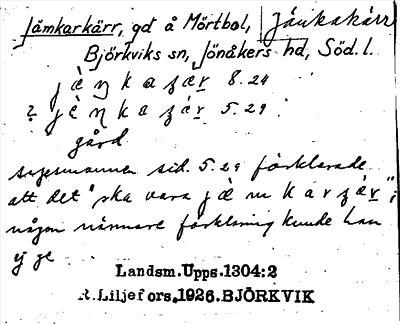 Jämkarkärr, gd å Mörtbol, Jänkakärr
Björkviks sn, Jönåkers hd, Söd. l.
8.24
? 5.29
gård
sagesmannen sid. 5.29 förklarade
att det "ska vara
någon närmare förklaring kunde han
ej ge
Landsm. Upps. 1304:2
R. Liljefors. 1926. BJÖRKVIK